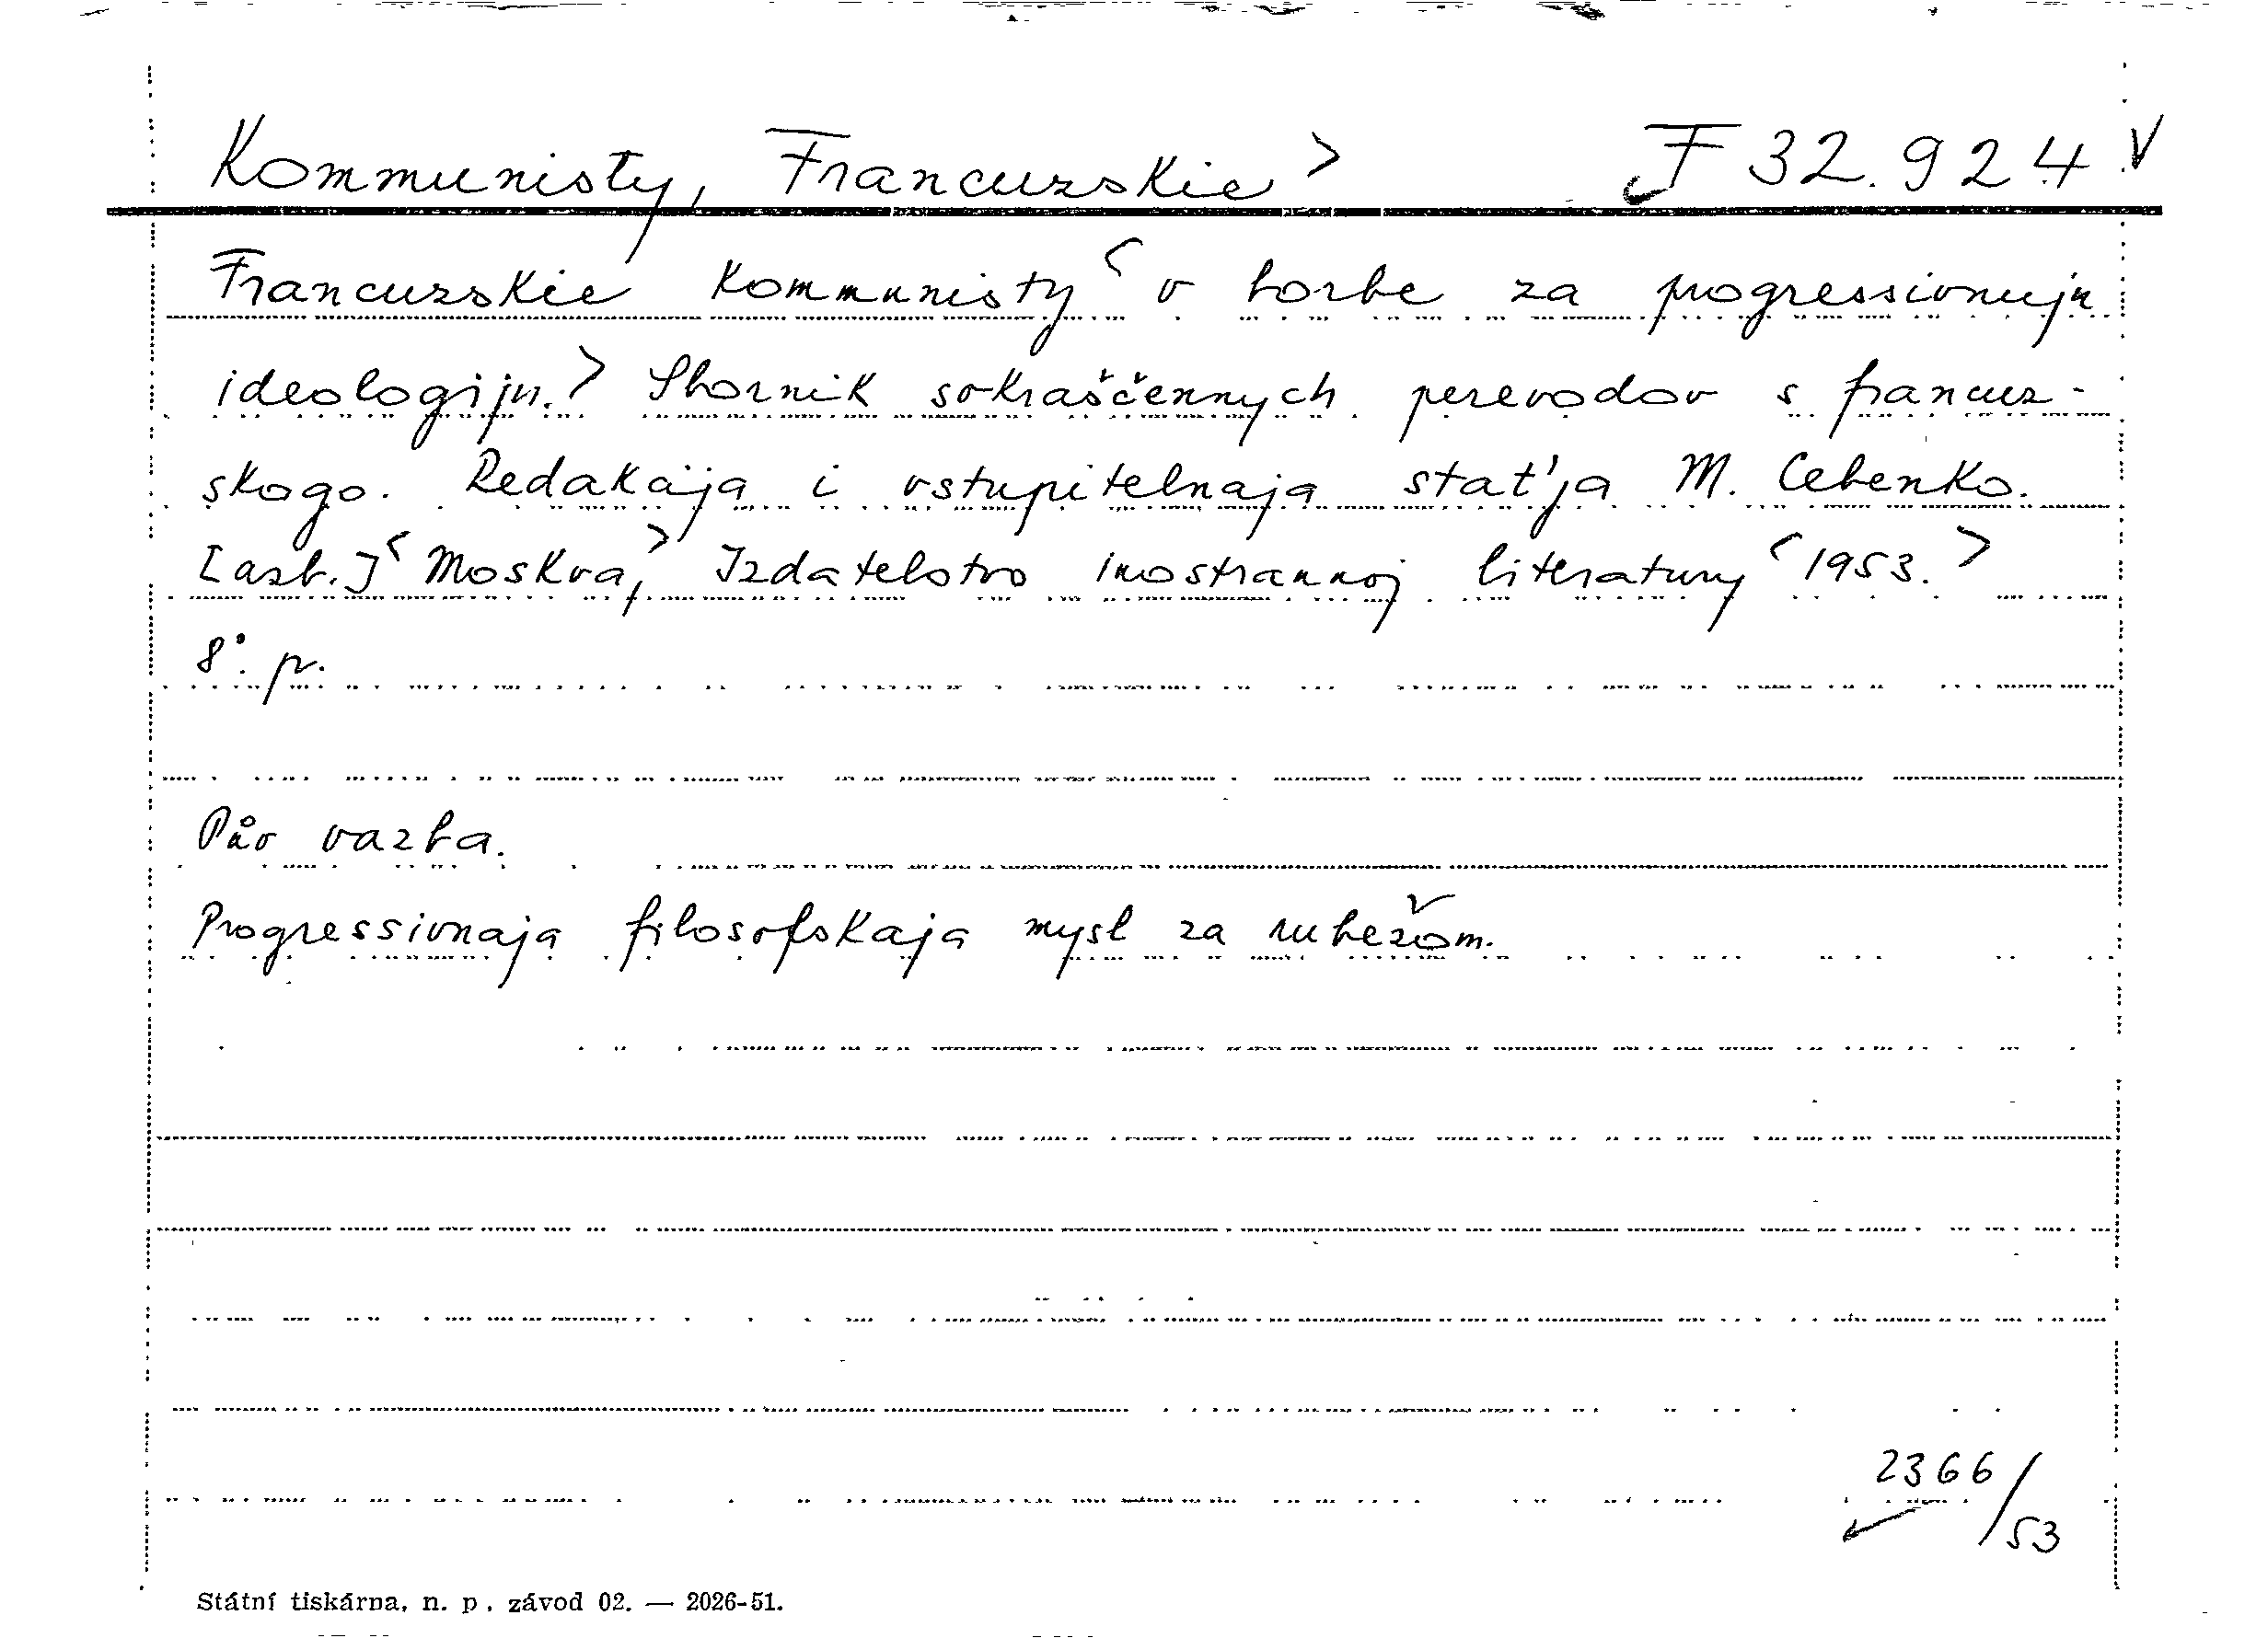 Kommunisty, Francuzskie > F 32.924 V
Francuzskie kommunisty < v borbe za progressivnuju
ideologiju. > Sbornik sokraščennych perevodov s francuz-
skogo. Redakcija i vstupitelnaja stat'ja M. Cebenko.
[azb.] < Moskva, > Izdatelstvo inostrannoj literatury < 1953. >
8°. p.
Pův vazba.
Progressivnaja filosofskaja mysl za rubežom.
2366/53
Státní tiskárna, n. p. závod 02. — 2026-51.